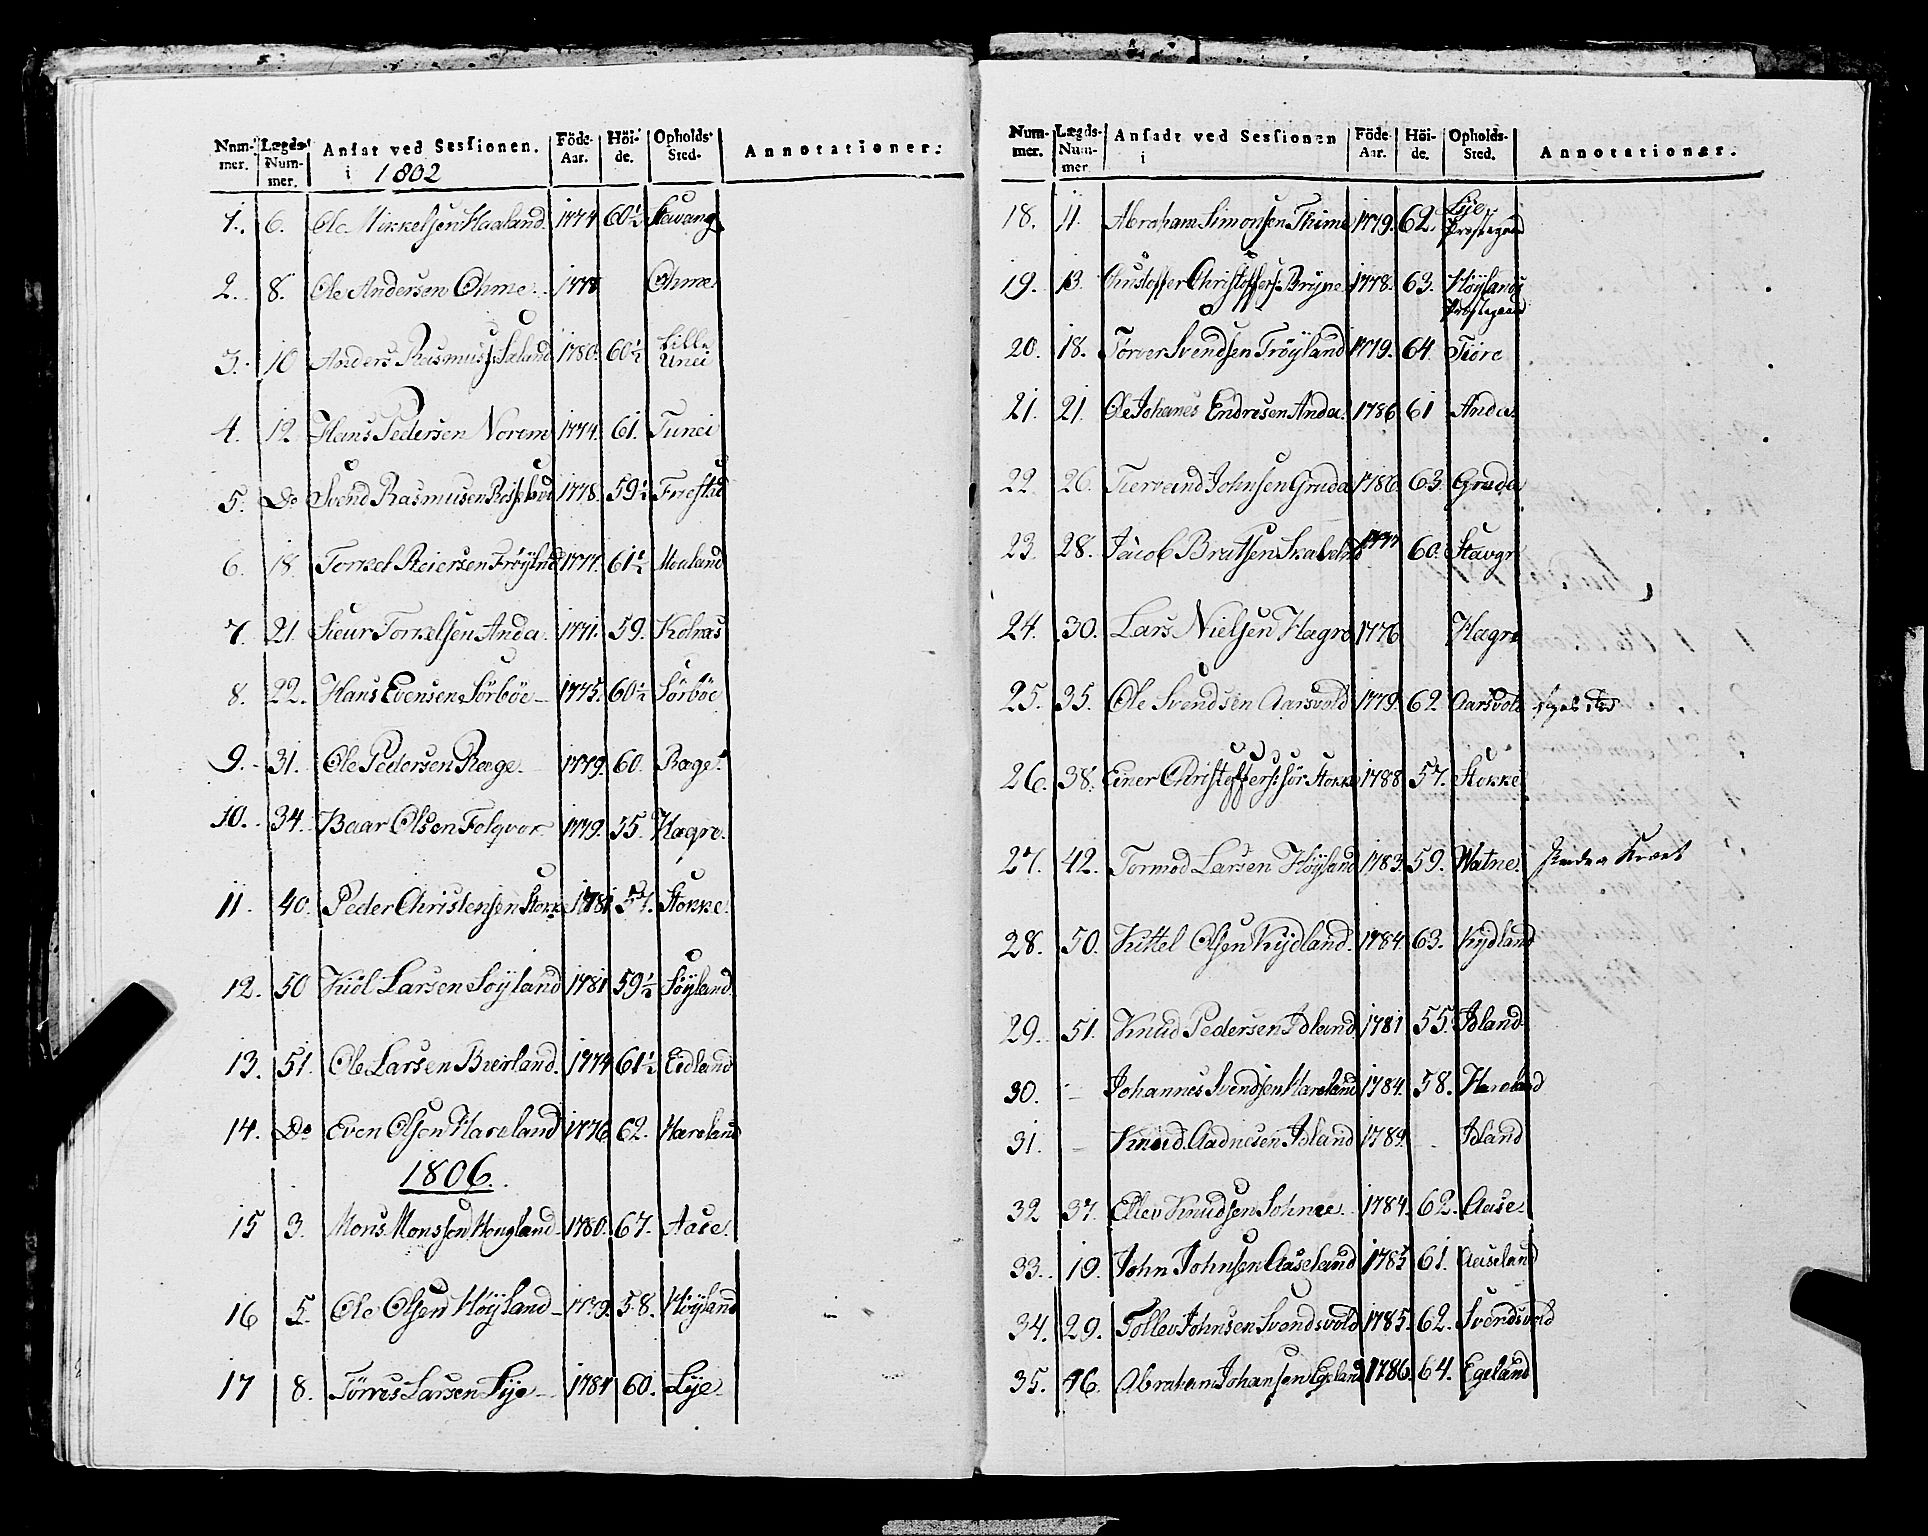 Num- Lægds- Ansat ved Sessionen. Föde- Höi- Opholds- Annotationer.
mer. Num- i 1802 Aar. de. Sted.
mer.
1. 6. Ole Mikkelsen Haaland. 1774 60½ Stavang
2. 8. Ole Andersen Ohme. 1778 Ohme
3. 10 Anders Rasmuss: Sæland 1780. 60½ Lille Unei
4. 12 Hans Pedersen Norem 1774. 61. Tunei
5. Do Svend Rasmusen 1778. 59½ Friestad
6. 18. Torkel Reiersen Frøylnd 1777. 61½ Moaland
7. 21. Sieur Torkelsen Anda. 1771. 59. Kolnæs
8. 22. Hans Evensen Sörböe 1775. 60½ Sörböe
9. 31. Ole Pedersen Ræge. 1779. 60. Ræge.
10. 34. Baar Olsen 1779. 55. Hægre.
11. 40. Peder Christensen Stokk 1781 57. Stokke.
12. 50 Kiöl Larsen Söyland 1781 59½ Söyland.
13. 51. Ole Larsen Bierland. 1774 61½ Eidland
14. Do Even Olsen Hareland 1776 62. Hareland
1806.
15 3. Mons Monssen Hougland 1780. 67. Aase.
16 5. Ole Olsen Höyland 1779. 58. Höyland
17 8. Törres Larsen Lÿe 1784 60. Lÿe
Num- Lægds- Ansadt ved Sessionen Föde- Höi- Opholds- Annotationer.
mer. Num- i Aar. de. Sted.
mer
18. 11. Abraham Simonsen Thime 1779. 62. Lÿe Præstegaard
19. 13. Christoffer Christoffers: Brÿne 1778. 63. Höylands Præstegaard
20. 18. Törver Svendsen Tröyland 1779. 64. Tiöre
21. 21. Ole Johanes Endresen Anda. 1786 61 Anda.
22. 26. Johnsen Gruda 1786. 63. Gruda
23. 28. Jacob Bratsen 1777 60. Stavgr
24. 30. Lars Nielsen Hagre 1776 Hægre
25. 35. Ole Svendsen Aarsvold 1779. 62. Aarsvold
26. 38. Einer Christofferss: Stokke 1788 57. Stokke
27. 42. Tormod Larsen Höyland 1783. 59. Watne.
28. 50. Kittel Olsen Kÿdland. 1784 63. Kydland
29. 51. Knud Pedersen Idland 1781 55. Idland
30. – Johannes Svendsen Hareland 1784. 58. Hareland
31. – Knud Aadnesen Idland 1789. Idland
32 37. Ellev Knudsen 1784. 62. Aase
33. 19. John Johnsen Aaseland 1785 61. Aaseland
34. 29. Tollev Johnsen Svendsvold 1785. 62. Svendsvold
35. 46. Abraham Johansen Egeland 1786. 64. Egeland